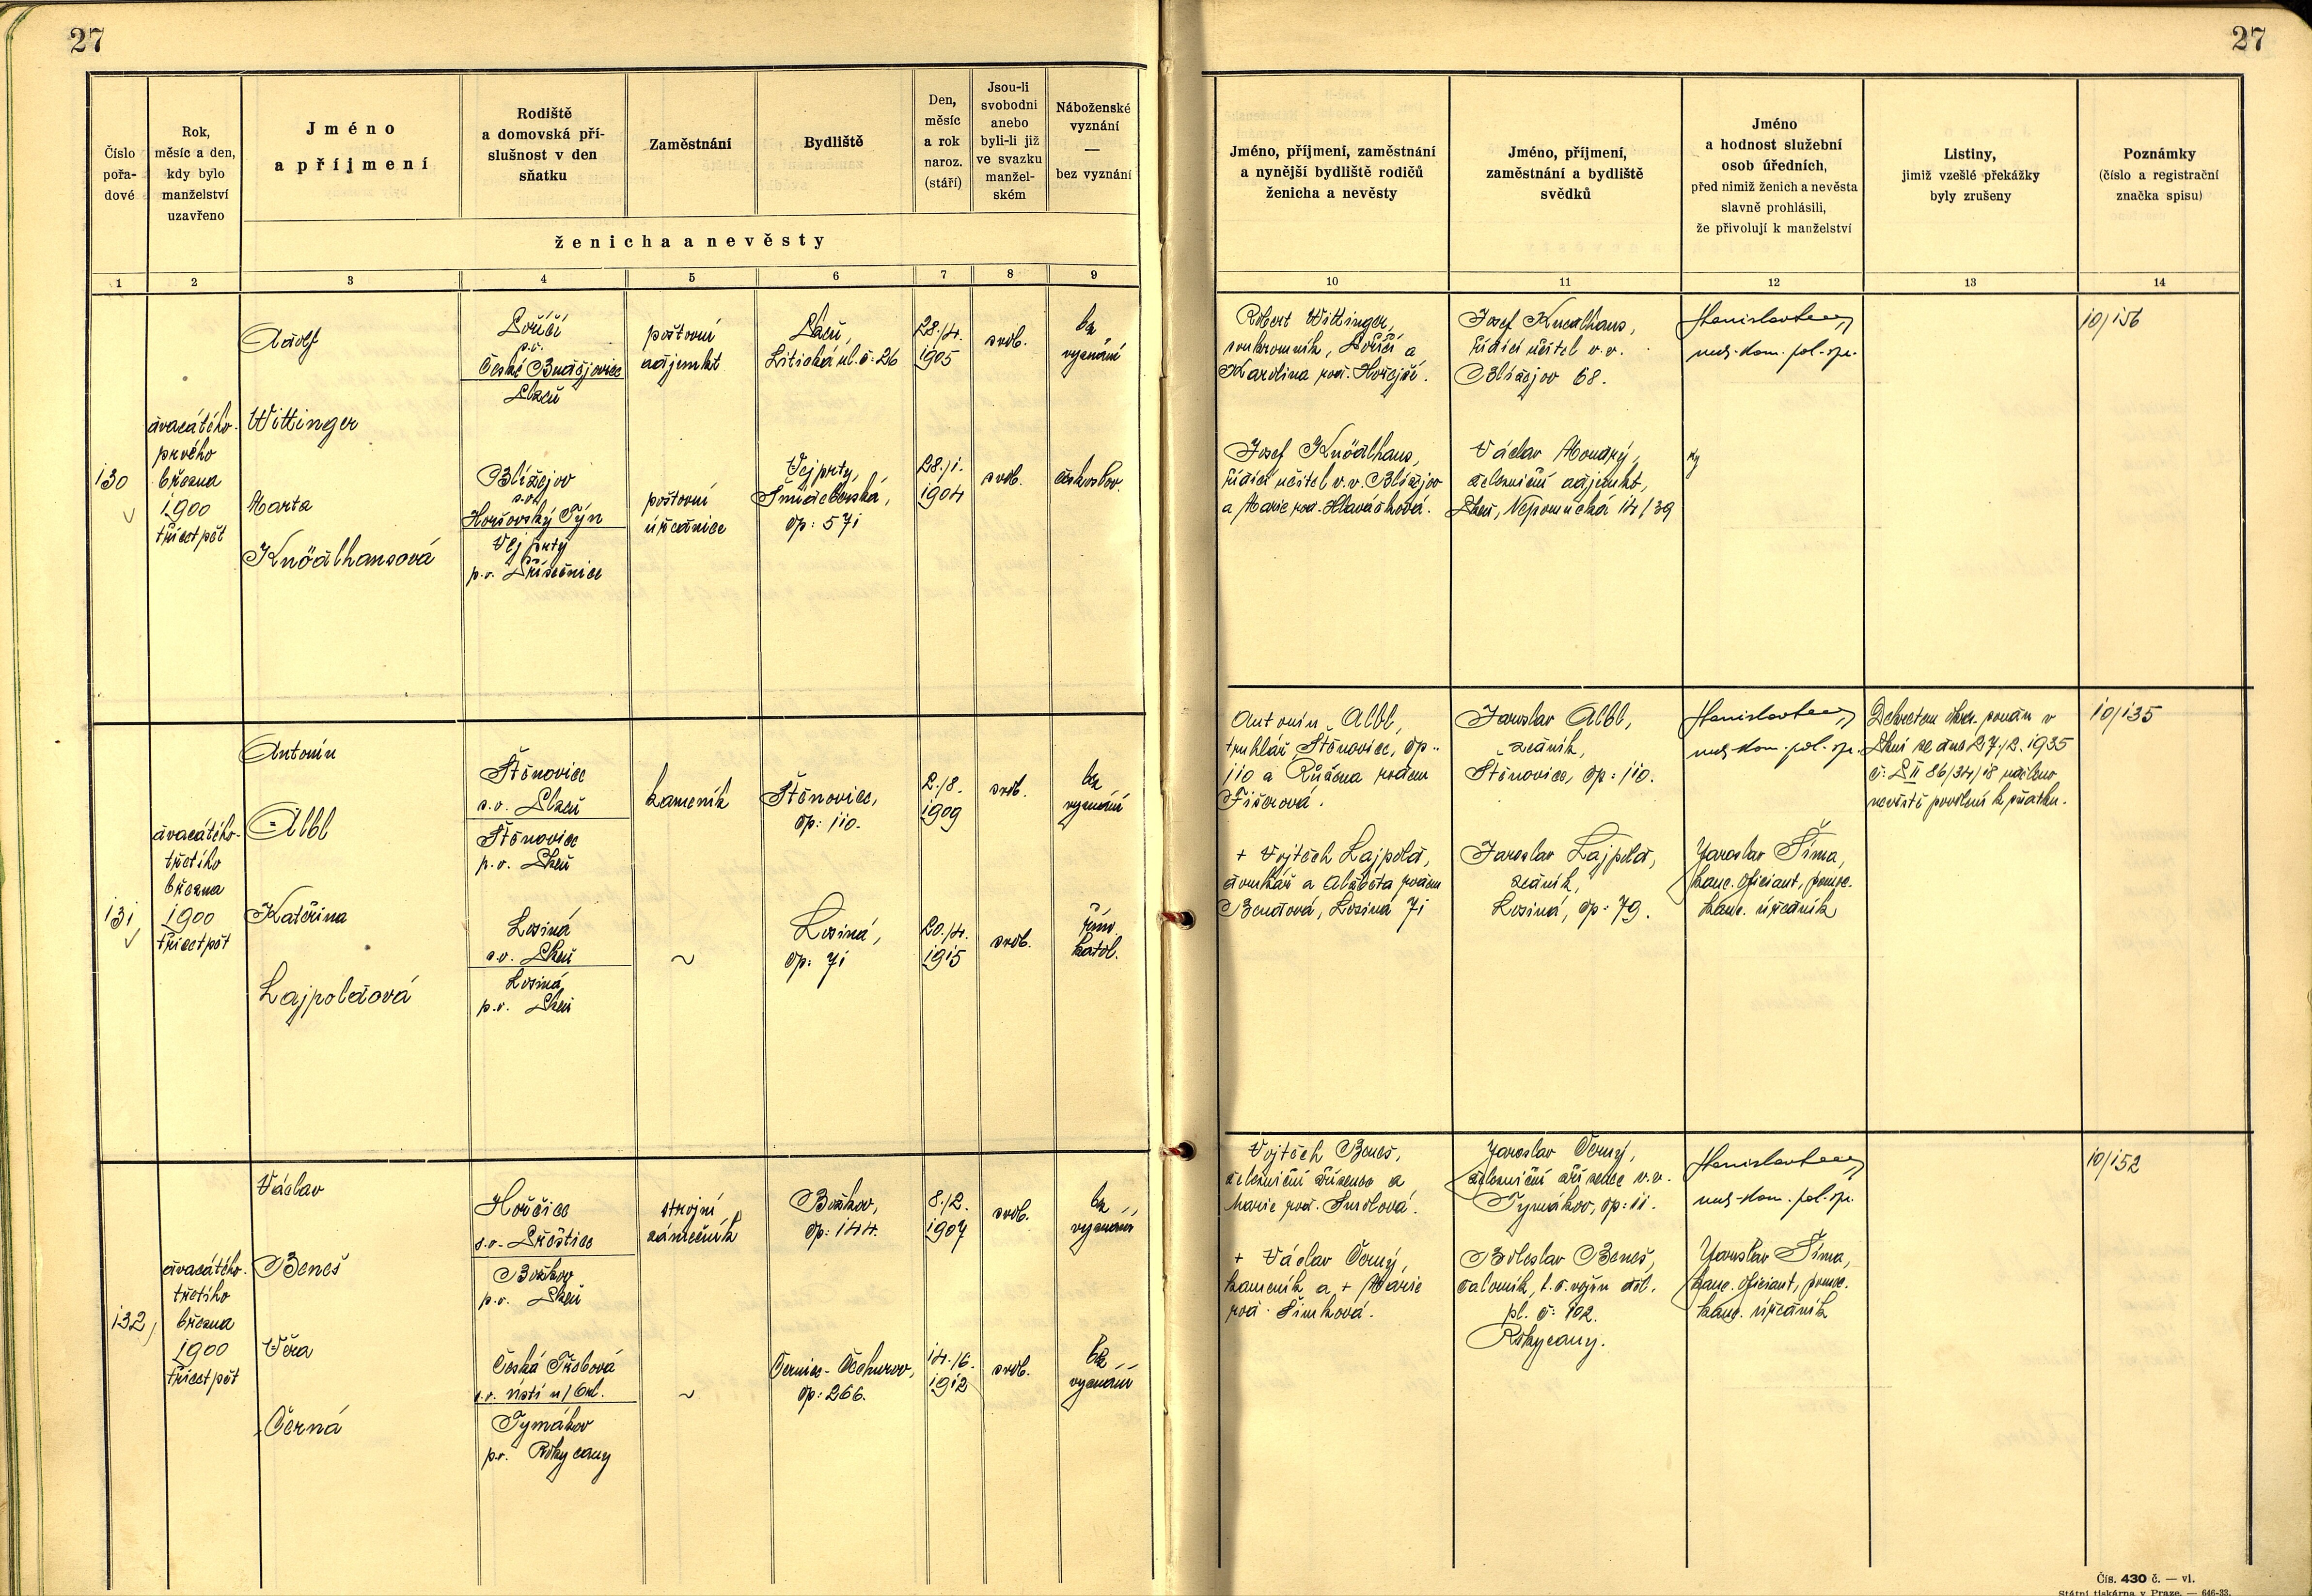 27
27
Číslo pořa-dové
Rok, měsíc a den, kdy bylo manželství uzavřeno
Jméno a příjmení
Rodiště a domovská pří-slušnost v den sňatku
Zaměstnání
Bydliště
Den, měsíc a rok naroz. (stáří)
Jsou-li svobodni anebo byli-li již ve svazku manžel-ském
Náboženské vyznání — bez vyznání
ženicha a nevěsty
1 2 3 4 5 6 7 8 9
Jméno, příjmení, zaměstnání a nynější bydliště rodičů ženicha a nevěsty
Jméno, příjmení, zaměstnání a bydliště svědků
Jméno a hodnost služební osob úředních, před nimiž ženich a nevěsta slavně prohlásili, že přivolují k manželství
Listiny, jimiž vzešlé překážky byly zrušeny
Poznámky (číslo a registrační značka spisu)
10 11 12 13 14
130
dvacátého-
prvého
března
1900
třicetpět
Adolf
Wittinger
Poříčí
p.o.
České Budějovice
Plzeň
poštovní
adjunkt
Plzeň,
Litická ul. č: 26
28./4.
1905
svob.
bez
vyznání
Marta
Knödlhansová
Blížejov
s.o.
Horšovský Týn
Vejprty
p.o. Přísečnice
poštovní
úřednice
Vejprty,
Šmideberská,
čp: 571
28./1.
1904
svob.
českoslov.
Robert Wittinger,
soukromník, Poříčí a
Karolina roz. Hořejší.
Josef Knödlhans,
řídící učitel v.v. Blížejov
a Marie roz. Hlaváčková.
Josef Knedlhans,
řídící učitel v.v.
Blížejov 68.
Václav Moudrý,
železniční adjunkt,
Plzeň, Nepomucká 14/39
10/156
131
dvacátého-
třetího
března
1900
třicetpět
Antonín
Albl
Štěnovice
s.o. Plzeň
Štěnovice
p.o. Plzeň
kameník
Štěnovice,
čp: 110.
2./8.
1909
svob.
bez
vyznání
Kateřina
Lajpoldová
Losiná
s.o. Plzeň
Losiná
p.o. Plzeň
~
Losiná,
čp: 71
20./4.
1915
svob.
řím.
katol.
Antonín Albl,
truhlář Štěnovice, čp.:
110 a Růžena rozem
Fišerová.
+ Vojtěch Lajpold,
domkář a Alžběta rozem
Bendová, Losiná 71
Jaroslav Albl,
zedník,
Štěnovice, čp: 110.
Jaroslav Lajpold,
zedník,
Losiná, čp: 79.
Jaroslav Šíma,
kanc. oficiant, pomoc.
kanc. úředník
Dekretem okr. soudu v
Plzni ze dne 27./2. 1935
č: P II 86/34/18 uděleno
nevěstě povolení k sňatku.
10/135
132
dvacátého-
třetího
března
1900
třicetpět
Václav
Beneš
Horčice
s.o. Přeštice
Božkov
p.o. Plzeň
strojní
zámečník
Božkov,
čp: 144.
8./2.
1907
svob.
bez
vyznání
Věra
Černá
Česká Třebová
s.o. Ústí n/Orl.
Tymákov
p.o. Rokycany
~
Černice-Čechurov,
čp: 266.
14./6.
1912
svob.
bez
vyznání
Vojtěch Beneš,
železniční zřízenec a
Marie roz. Smolová.
+ Václav Černý,
kameník a + Marie
roz. Šimková.
Jaroslav Černý,
železniční zřízenec v.v.
Tymákov, čp: 11.
Boleslav Beneš,
pl. č: 102.
Rokycany.
Jaroslav Šíma,
kanc. oficiant, pomoc.
kanc. úředník
10/152
Čís. 430 č. — vl.
Státní tiskárna v Praze. — 646-33.